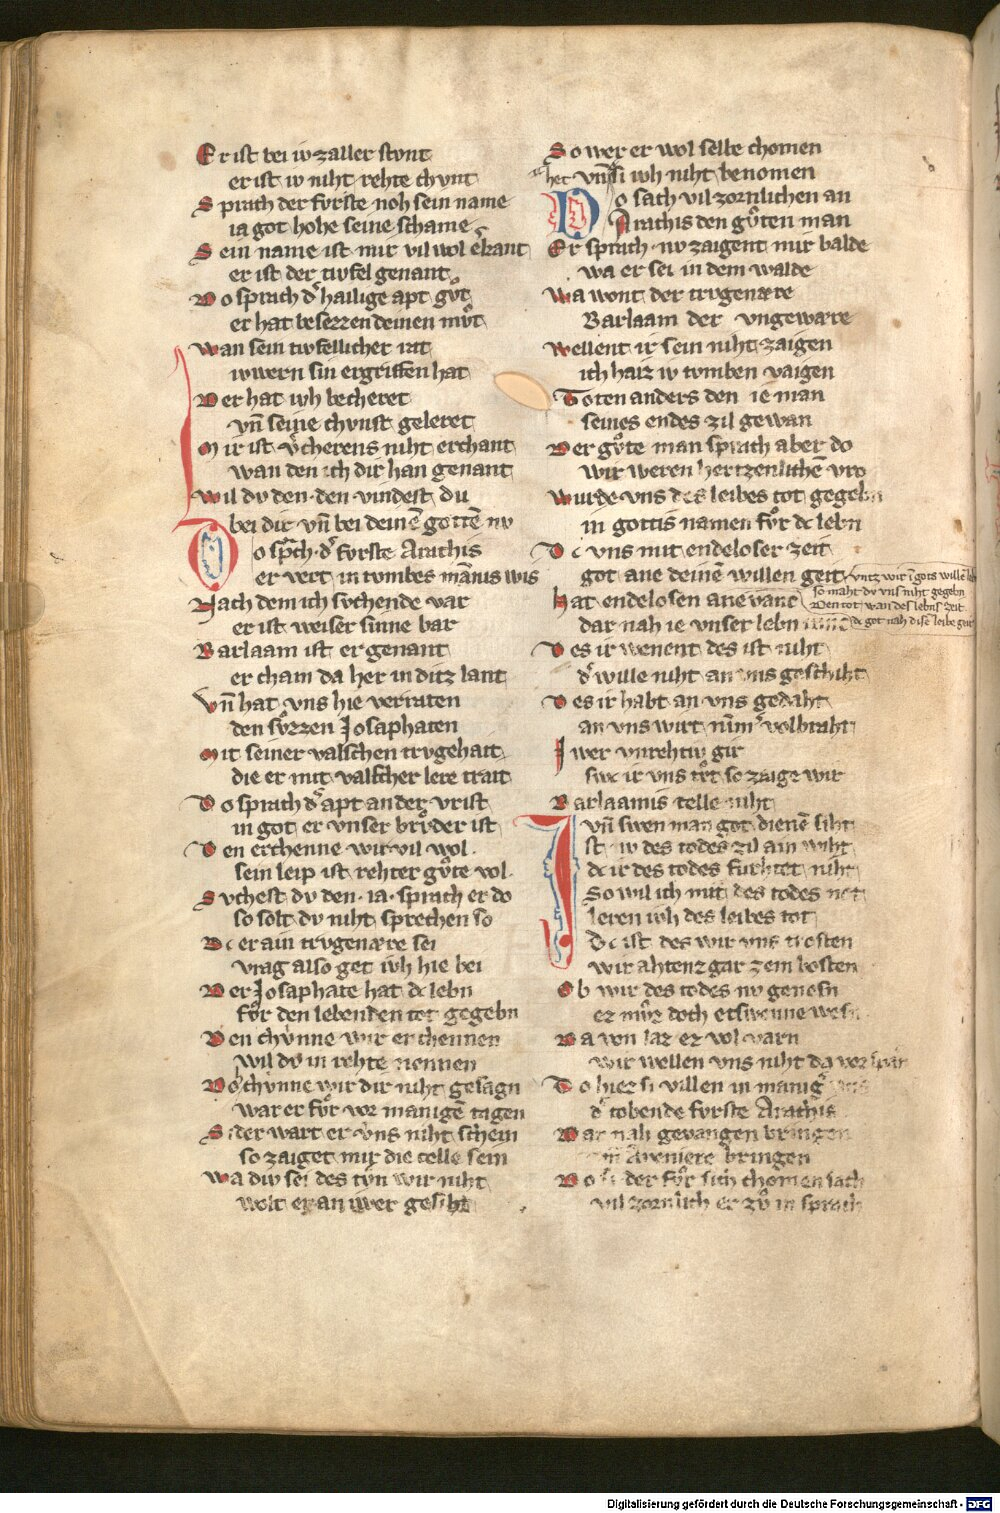 Er ist bei iv zaller stvnt
er ist iv niht rehte chvnt
Sprach der fvrste noh sein name
ia got hohe seine schame
Sein name ist mir vil wol erkant
er ist der tivfel genant
Do sprach d͛ hailige apt gvͦt
er hat beserzen deinen mvͦt
Wan sein tivfellicher rat
iwern sin ergriffen hat
Der hat ivh becheret
vn̄ seine chvnst geleret
Mir ist v͛cherens niht erchant
wan den ich dir han genant
Wil dv den · den vindest du
bei dir vn̄ bei deinē gottē nv
Do sprach d͛ fvrste Arachis
er vert in tvmbes mānis wis
Nach dem ich svchende var
er ist weiser sinne bar
Barlaam ist er genant
er cham da her in ditz lant
Vn̄ hat vns hie verraten
den svͦzzen Josaphaten
Mit seiner valschen trvgehait
die er mit valscher lere trait
Do sprach d͛ apt an der vrist
in got er vnser brvͦder ist
Den erchenne wir vil wol
sein leip ist rehter gvͦte vol
Svchest dv den · ia · sprach er do
so solt dv niht sprechen so
Dc er ain trvgenære sei
vrag also get ivh hie bei
Der Josaphate hat dc lebn
fvͦr den lebenden tot gegebn
Den chvnne wir erchennen
wil dv in rehte nennen
Do chvnne wir dir niht gesagn
war er fvͦr vor manigē tagen
Sider wart er vns niht schein
so zaiget mir die celle sein
Wa div sei des tvn wir niht
wolt er an iwer gesiht
So wer er wol selbe chomen
her vn̄ si ivh niht benomen
Do sach vil zornlichen an
Arachis den gvͦten man
Er sprach · nv zaigent mir balde
wa er sei in dem walde
Wa wont der trvgenære
Barlaam der vngewære
Wellent ir sein niht zaigen
ich haiz iv tomben vaigen
Toten anders den ie man
seines endes zil gewan
Der gvͦte man sprach aber do
wir weren hertzenlichē vro
Wurde vns des leibes tot gegebn
in gottis namen fvͦr dc lebn
Dc vns mit endeloser zeit
got ane deinē willen geit
vntz wir ī gots willē leb
so maht dv vns niht gegebn
Den tot wan des lebns zeit
dc got nah disē leibe geit
Hat endelosen ane vanc
dar nah ie vnser lebn
Des ir wenent des ist niht
d͛ wille niht an vns geschiht
Des ir habt an vns gedaht
an vns wirt nīm͛ volbraht
Iwer vnrehtiv gir
swc ir vns tvͦt so zaige wir
Barlaamis celle niht
vn̄ swen man got dienē siht
Ist iv des todes zil ain wiht
dc ir des todes furhtet niht
So wil ich mit des todes not
leren ivh des leibes tot
Dc ist des wir vns trosten
wir ahtenz gar zem bosten
Ob wir des todes nv genesn
ez mvͦz doch etswenne wesn
Da von laz ez vol varn
wir wellen vns niht da vor sparn
Do hiez si villen in manig͛
d͛ tobende fvrste Arachis
Dar nah gevangen bringen
Aveniere bringen
Do si der fvͦr sich chomen sach
vil zornlich er zvͦ in sprach
Digitalisierung gefördert durch die Deutsche Forschungsgemeinschaft - DFG